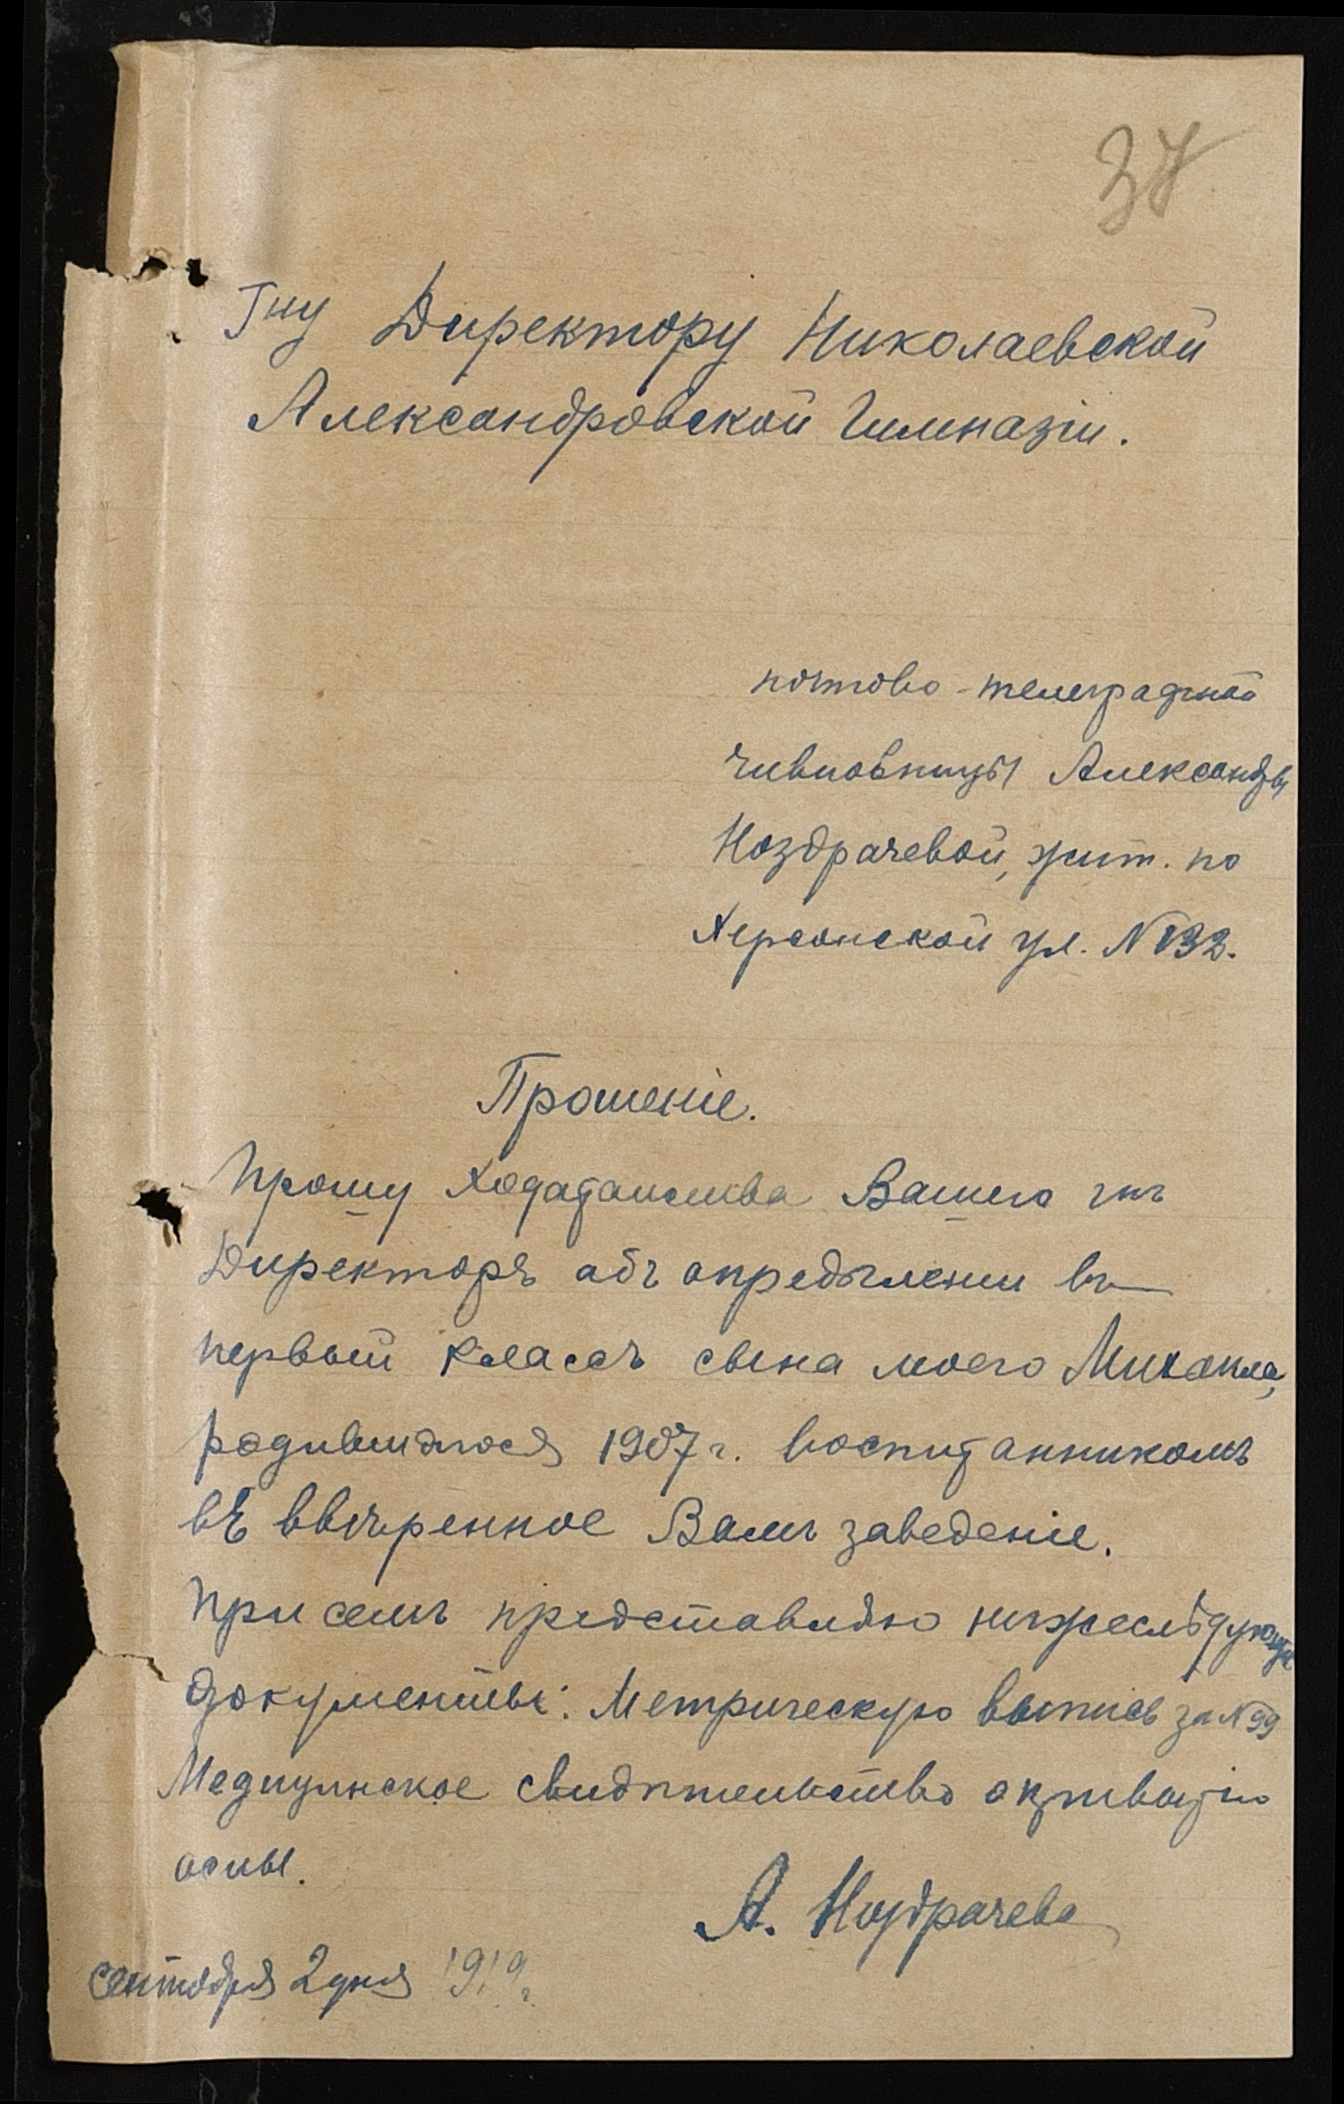 37
Гну Директору Николаевской
Александровской Гимназіи.
почтово-телеграфной
чиновницы Александры
Ноздрачевой, жит. по
Херсонской ул. №132.
Прошеніе.
Прошу ходатайства Вашего гнъ
Директоръ объ опредѣлении въ
первый классъ сына моего Михаила,
родившагося 1907 г. воспитанникомъ
въ ввѣренное Вамъ заведеніе.
При семъ представляю нижеслѣдующіе
документы: Метрическую выпись за №99
Медицинское свидѣтельство
оспы.
А. Ноздрачева
сентября 2 дня 1919 г.